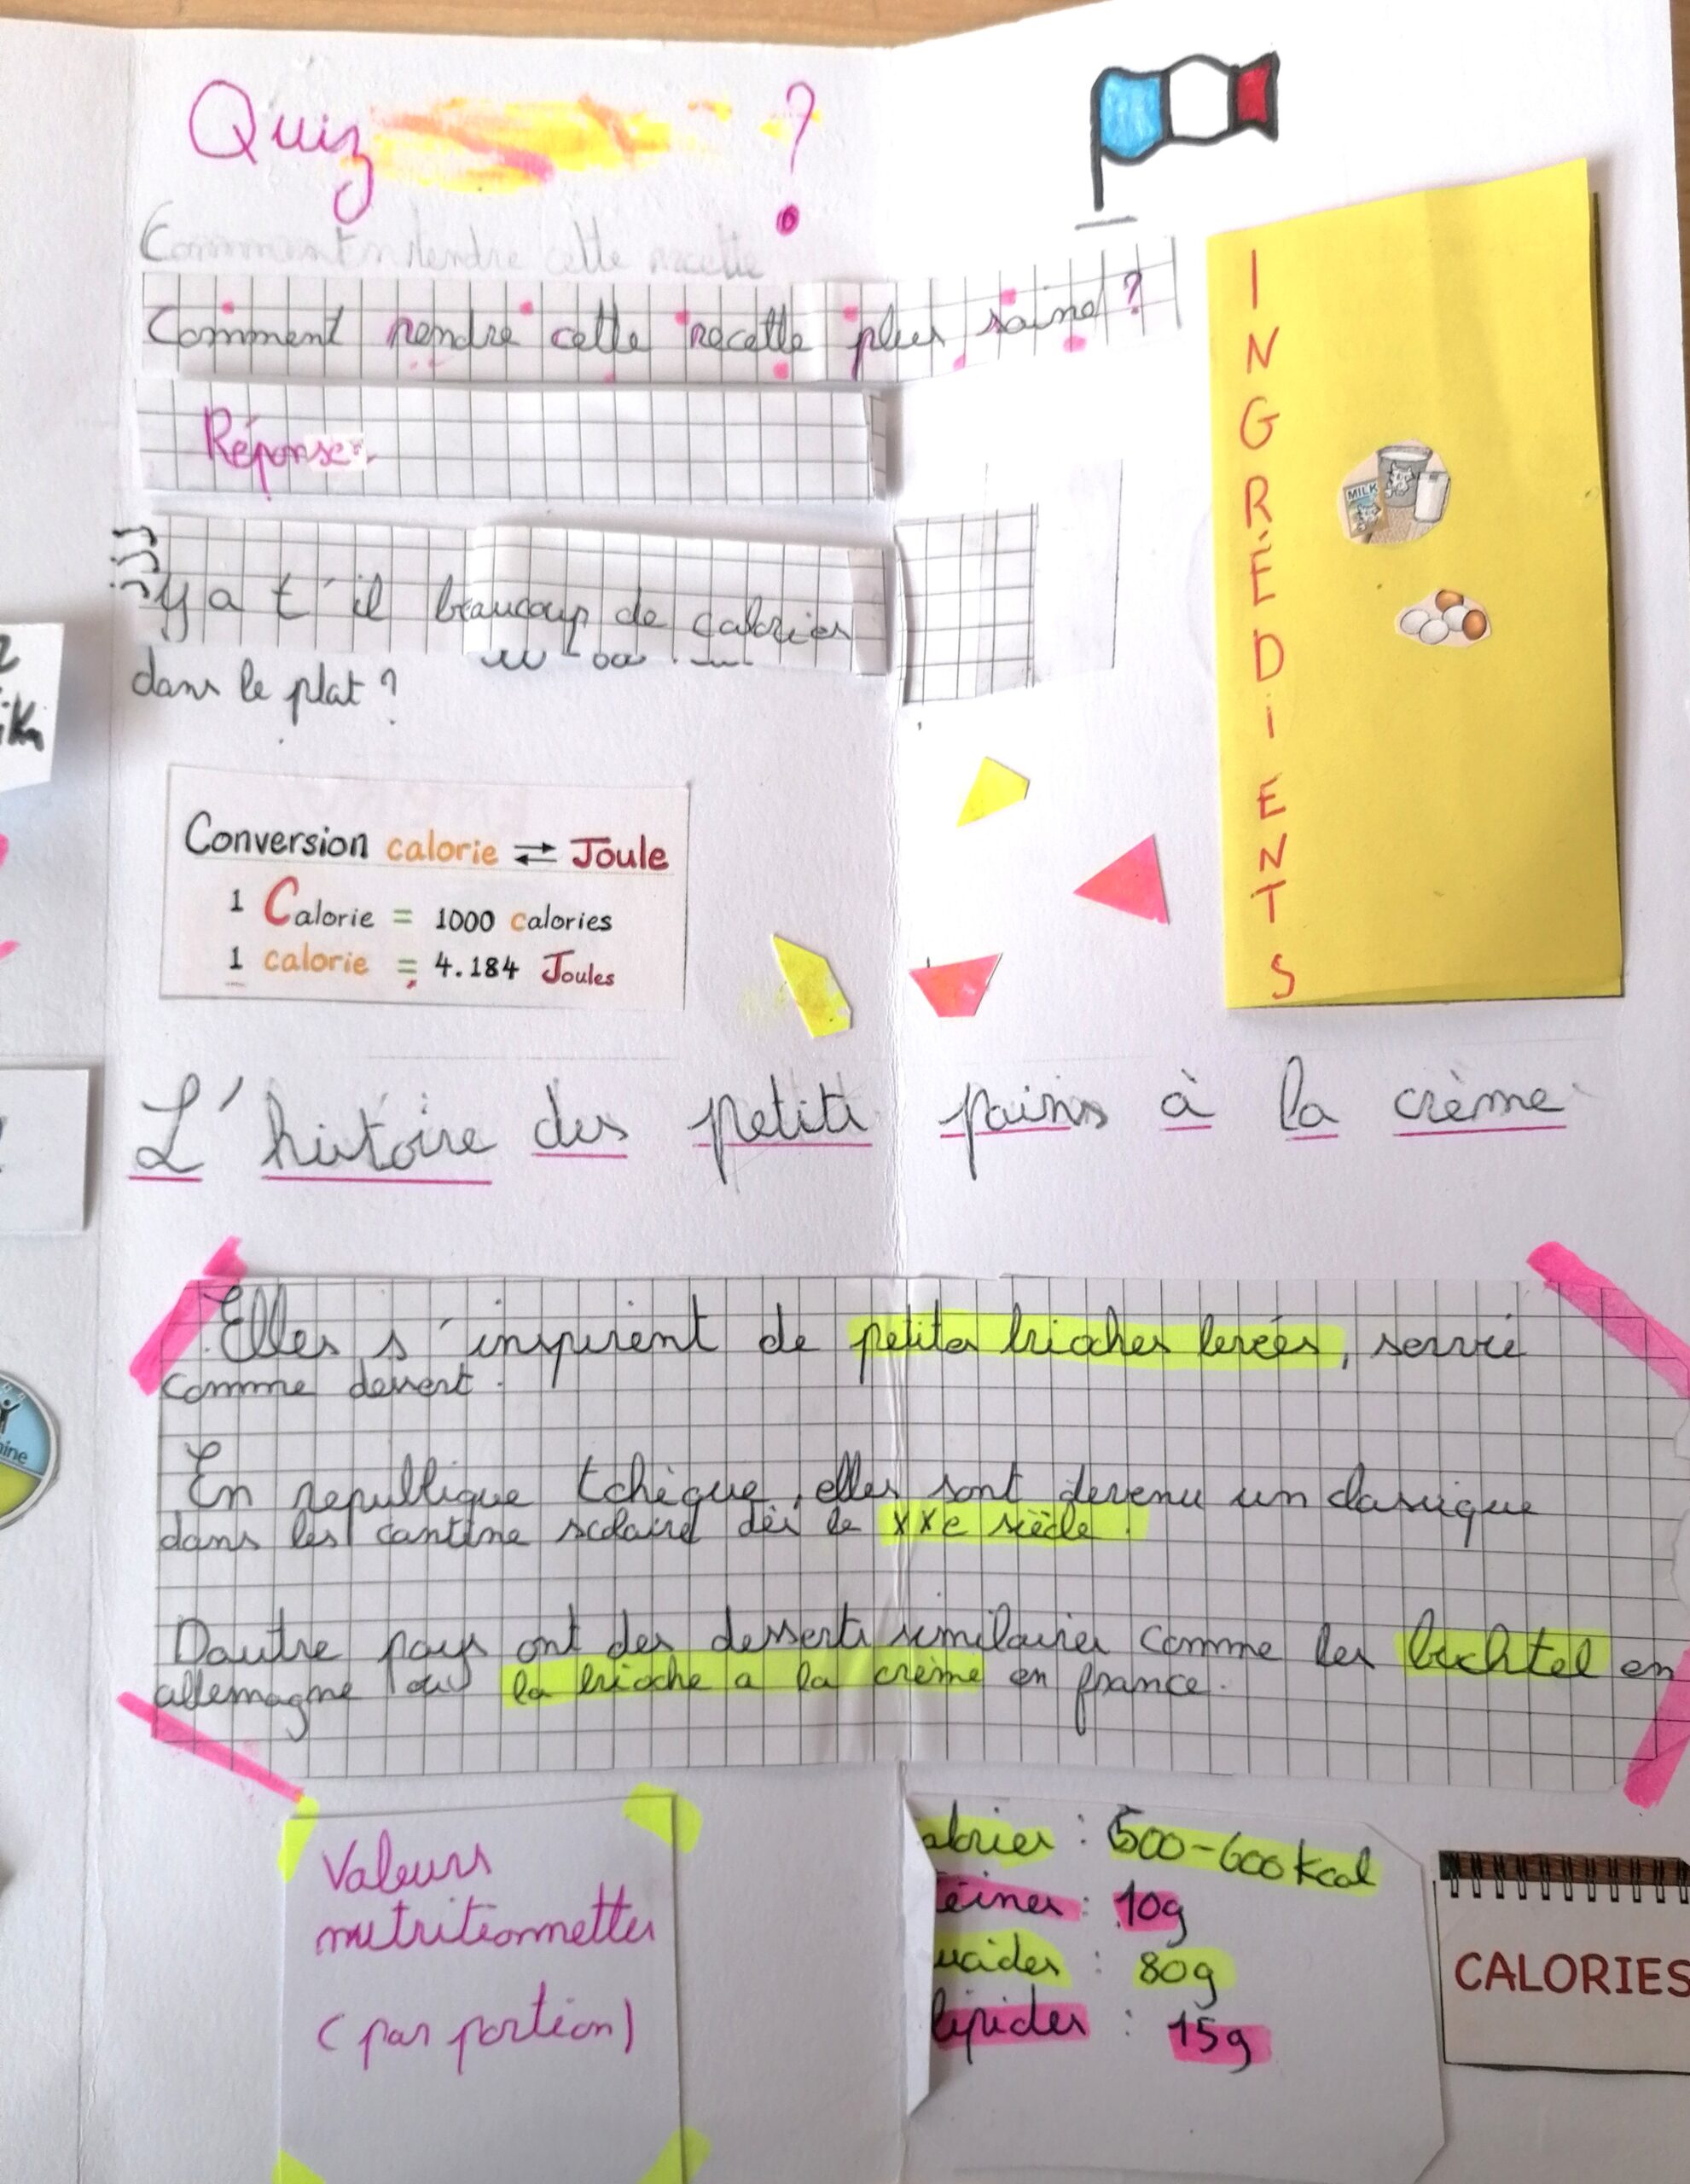 Quiz ?
Comment rendre cette recette
Comment rendre cette recette plus saine ?
Réponse:
y a t'il beaucoup de calories
dans le plat ?
Conversion calorie ⇄ Joule
1 Calorie = 1000 calories
1 calorie = 4.184 Joules
INGRÉDiENTS
MILK
L'histoire des petits pains à la crème
Elles s'inspirent de petites brioches levées, servie
comme dessert.
En republique tchèque, elles sont devenu un classique
dans les cantine scolaire dès le XXe siècle.
Dautre pays ont des desserts similaires comme les buchtel en
allemagne ou la brioche a la crème en france.
Valeurs
nutritionnettes
(par portion)
alories : 500-600 kcal
téines : 10g
ucides : 80g
lipides : 15g
CALORIES